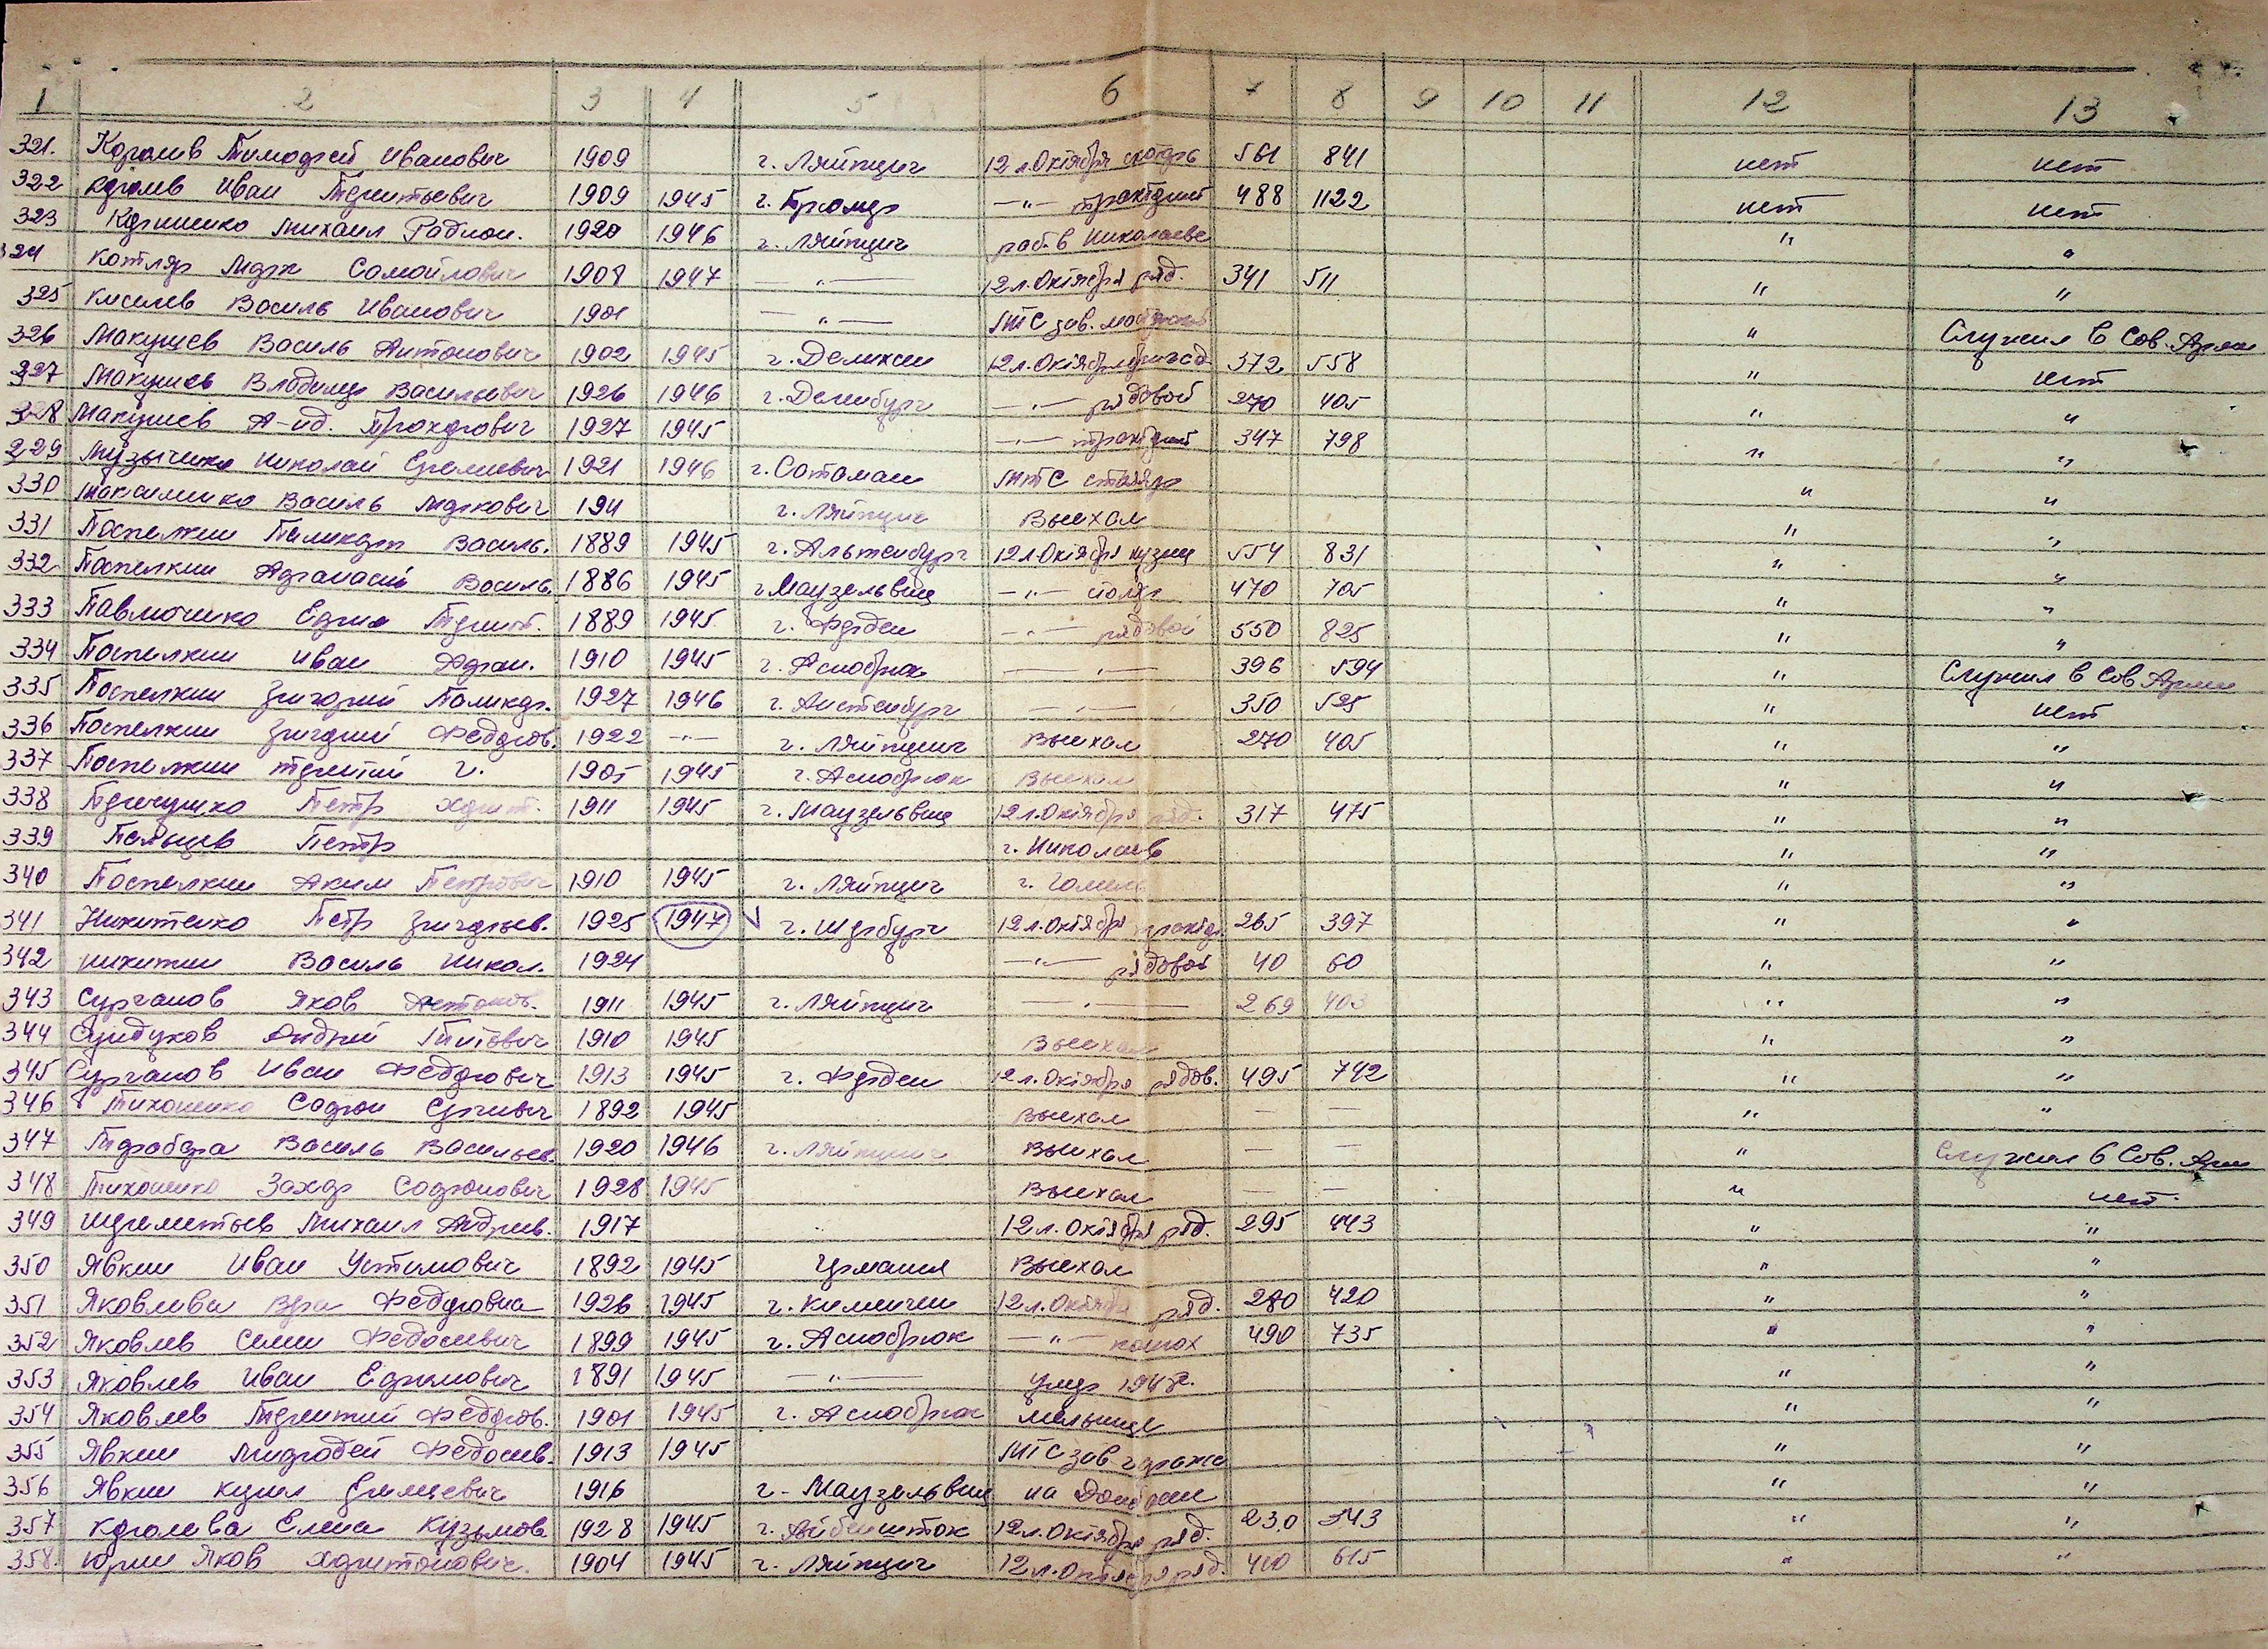 1 2 3 4 5 6 7 8 9 10 11 12 13
321. Королев Тимофей Иванович 1909 г. Ляйпциг 12 л. Октября 561 841 нет нет
322 Королев Иван Терентьевич 1909 1945 г. -"- 488 1122 нет нет
323 Михаил Радион. 1920 1946 г. Ляйпциг раб. в Николаеве " "
324 Котляр Марк Самойлович 1908 1947 -"- 12 л. Октября ряд. 341 511 " "
325 Киселев Василь Иванович 1901 -"- МТС зав. " Служил в Сов. Армии
326 Макушев Василь Антонович 1902 1945 г. 12 л. Октября бригад. 372 558 " нет
327 Макушев Владимир Васильевич 1926 1946 г. -"- рядовой 270 405 " "
328 Макушев А-нд. Прохорович 1927 1945 -"- 347 798 " "
329 Музыченко Николай 1921 1946 г. МТС столяр " "
330 Максименко Василь Маркович 1911 г. Ляйпциг Выехал " "
331 Поспелкин Поликарп Василь. 1889 1945 г. Альтенбург 12 л. Октября кузнец 554 831 " "
332 Поспелкин Афанасий Василь. 1886 1945 г. Маузельвиц -"- 470 705 " "
333 Павлюченко Ефим Терент. 1889 1945 г. Ферден -"- рядовой 550 825 " "
334 Поспелкин Иван Афан. 1910 1945 г. Аснобрюк -"- 396 594 " Служил в Сов Армии
335 Поспелкин Григорий Поликар. 1927 1946 г. -"- 350 525 " нет
336 Поспелкин Григорий Федоров. 1922 -"- г. Ляйпциг Выехал 270 405 " "
337 Поспелкин Терентий Г. 1905 1945 г. Аснобрюк Выехал " "
338 Петр Харит. 1911 1945 г. Маузельвиц 12 л. Октября ряд. 317 475 " "
339 Петр г. Николаев " "
340 Поспелкин Аким Петрович 1910 1945 г. Ляйпциг г. Гомель " "
341 Никитенко Петр Григорьев. 1925 1947 ✓ г. Шербург 12 л. Октября 265 397 " "
342 Никитин Василь Никол. 1924 -"- рядовой 40 60 " "
343 Сурганов Яков Антонов. 1911 1945 г. Ляйпциг -"- 269 403 " "
344 Сундуков Андрей Титович 1910 1945 Выехал " "
345 Сурганов Иван Федорович 1913 1945 г. Ферден 12 л. Октября рядов. 495 742 " "
346 Тихоненко Софрон 1892 1945 Выехал — — " "
347 Василь Васильев. 1920 1946 г. Ляйпциг Выехал — — " Служил в Сов. Арми
348 Тихоненко Захар Софронович 1928 1945 Выехал — — " нет.
349 Шереметьев Михаил Андреев. 1917 12 л. Октября ряд. 295 443 " "
350 Явкин Иван Устимович 1892 1945 Германия Выехал " "
351 Яковлева Вера Федоровна 1926 1945 г. 12 л. Октября ряд. 280 420 " "
352 Яковлев Семен Федосеевич 1899 1945 г. Аснобрюк -"- конюх 490 735 " "
353 Яковлев Иван Ефимович 1891 1945 -"- умер 1948г. " "
354 Яковлев Терентий Федоров. 1901 1945 г. Аснобрюк мельнице " "
355 Явкин Мифодей Федосеев. 1913 1945 МТС зав. гаража " "
356 Явкин Кирил 1916 г. Маузельвиц на Донбасе " "
357 Королева Елена Кузьмов. 1928 1945 г. 12 л. Октября ряд. 230 343 " "
358. Юрин Яков Харитонович. 1904 1945 г. Ляйпциг 12 л. Октября ряд. 410 615 " "